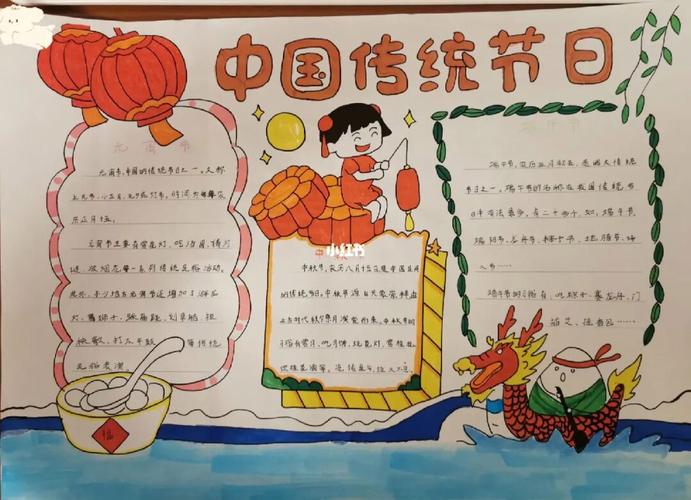 中国传统节日
元宵节
元宵节,中国的传统节日之一,又称
上元节、小正月、元夕或灯节,时间为每年农
历正月十五。
元宵节主要有赏花灯,吃汤圆,猜灯
谜,放烟花等一系列传统民俗活动。
此外,不少地方元宵节还增加了游龙
灯,舞狮子,踩高跷,划旱船,扭
秧歌,打太平鼓 等传统
民俗表演。
福
小红书
中秋节,农历八月十五是中国民间
的传统节日。中秋节源自天象崇拜,由
上古时代秋夕祭月演变而来。中秋节的
习俗有赏月、吃月饼、玩花灯、赏桂花、
饮桂花酒等。
端午节
端午节,农历五月初五,是四大传统
节日之一。端午节的名称在我国传统节
日中叫法最多,有二十多个,如,端午节
端阳节、龙舟节、
端午节的习俗有,吃粽子、赛龙舟、门
插艾、挂香包……